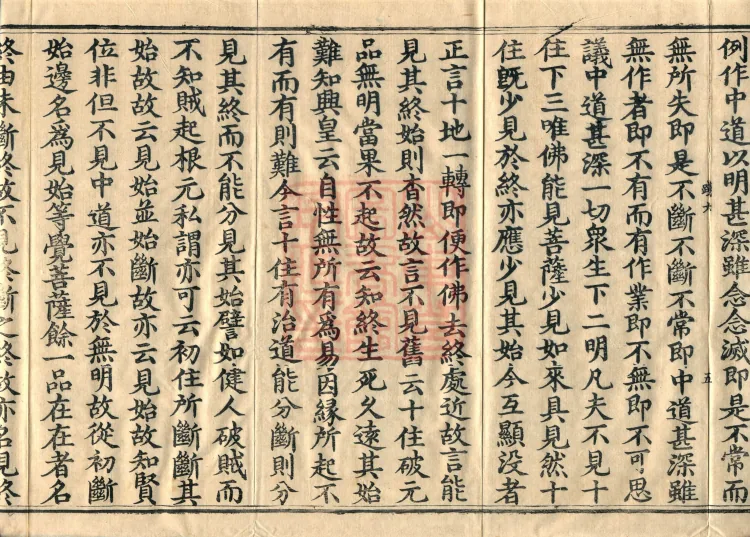 例作中道以明甚深雖念念滅即是不常而
無所失即是不斷不斷不常即中道甚深雖
無作者即不有而有作業即不無即不可思
議中道甚深一切衆生下二明凡夫不見十
住下三唯佛能見菩薩少見如來具見然十
住既少見於終亦應少見其始今互顯没者
正言十地一轉即便作佛去終處近故言能
見其終始則杳然故言不見舊云十住破元
品無明當果不起故云知終生死久遠其始
難知興皇云自性無所有爲易因緣所起不
有而有則難今言十住有治道能分斷則分
見其終而不能分見其始譬如健人破賊而
不知賊起根元私謂亦可云初住所斷斷其
始故故云見始並始斷故亦云見始故知賢
位非但不見中道亦不見於無明故從初斷
始邊名爲見始等覺菩薩餘一品在在者名
終由未斷終故不見終斷之終故亦名見終
五